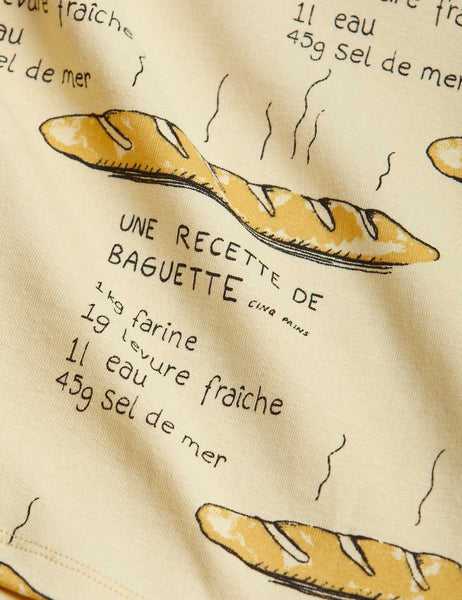 levure fraîche
au
el de mer
levure fra
1l eau
45g sel de mer
UNE RECETTE DE
BAGUETTE CINQ PAINS
1kg farine
1g levure fraîche
1l eau
45g sel de mer